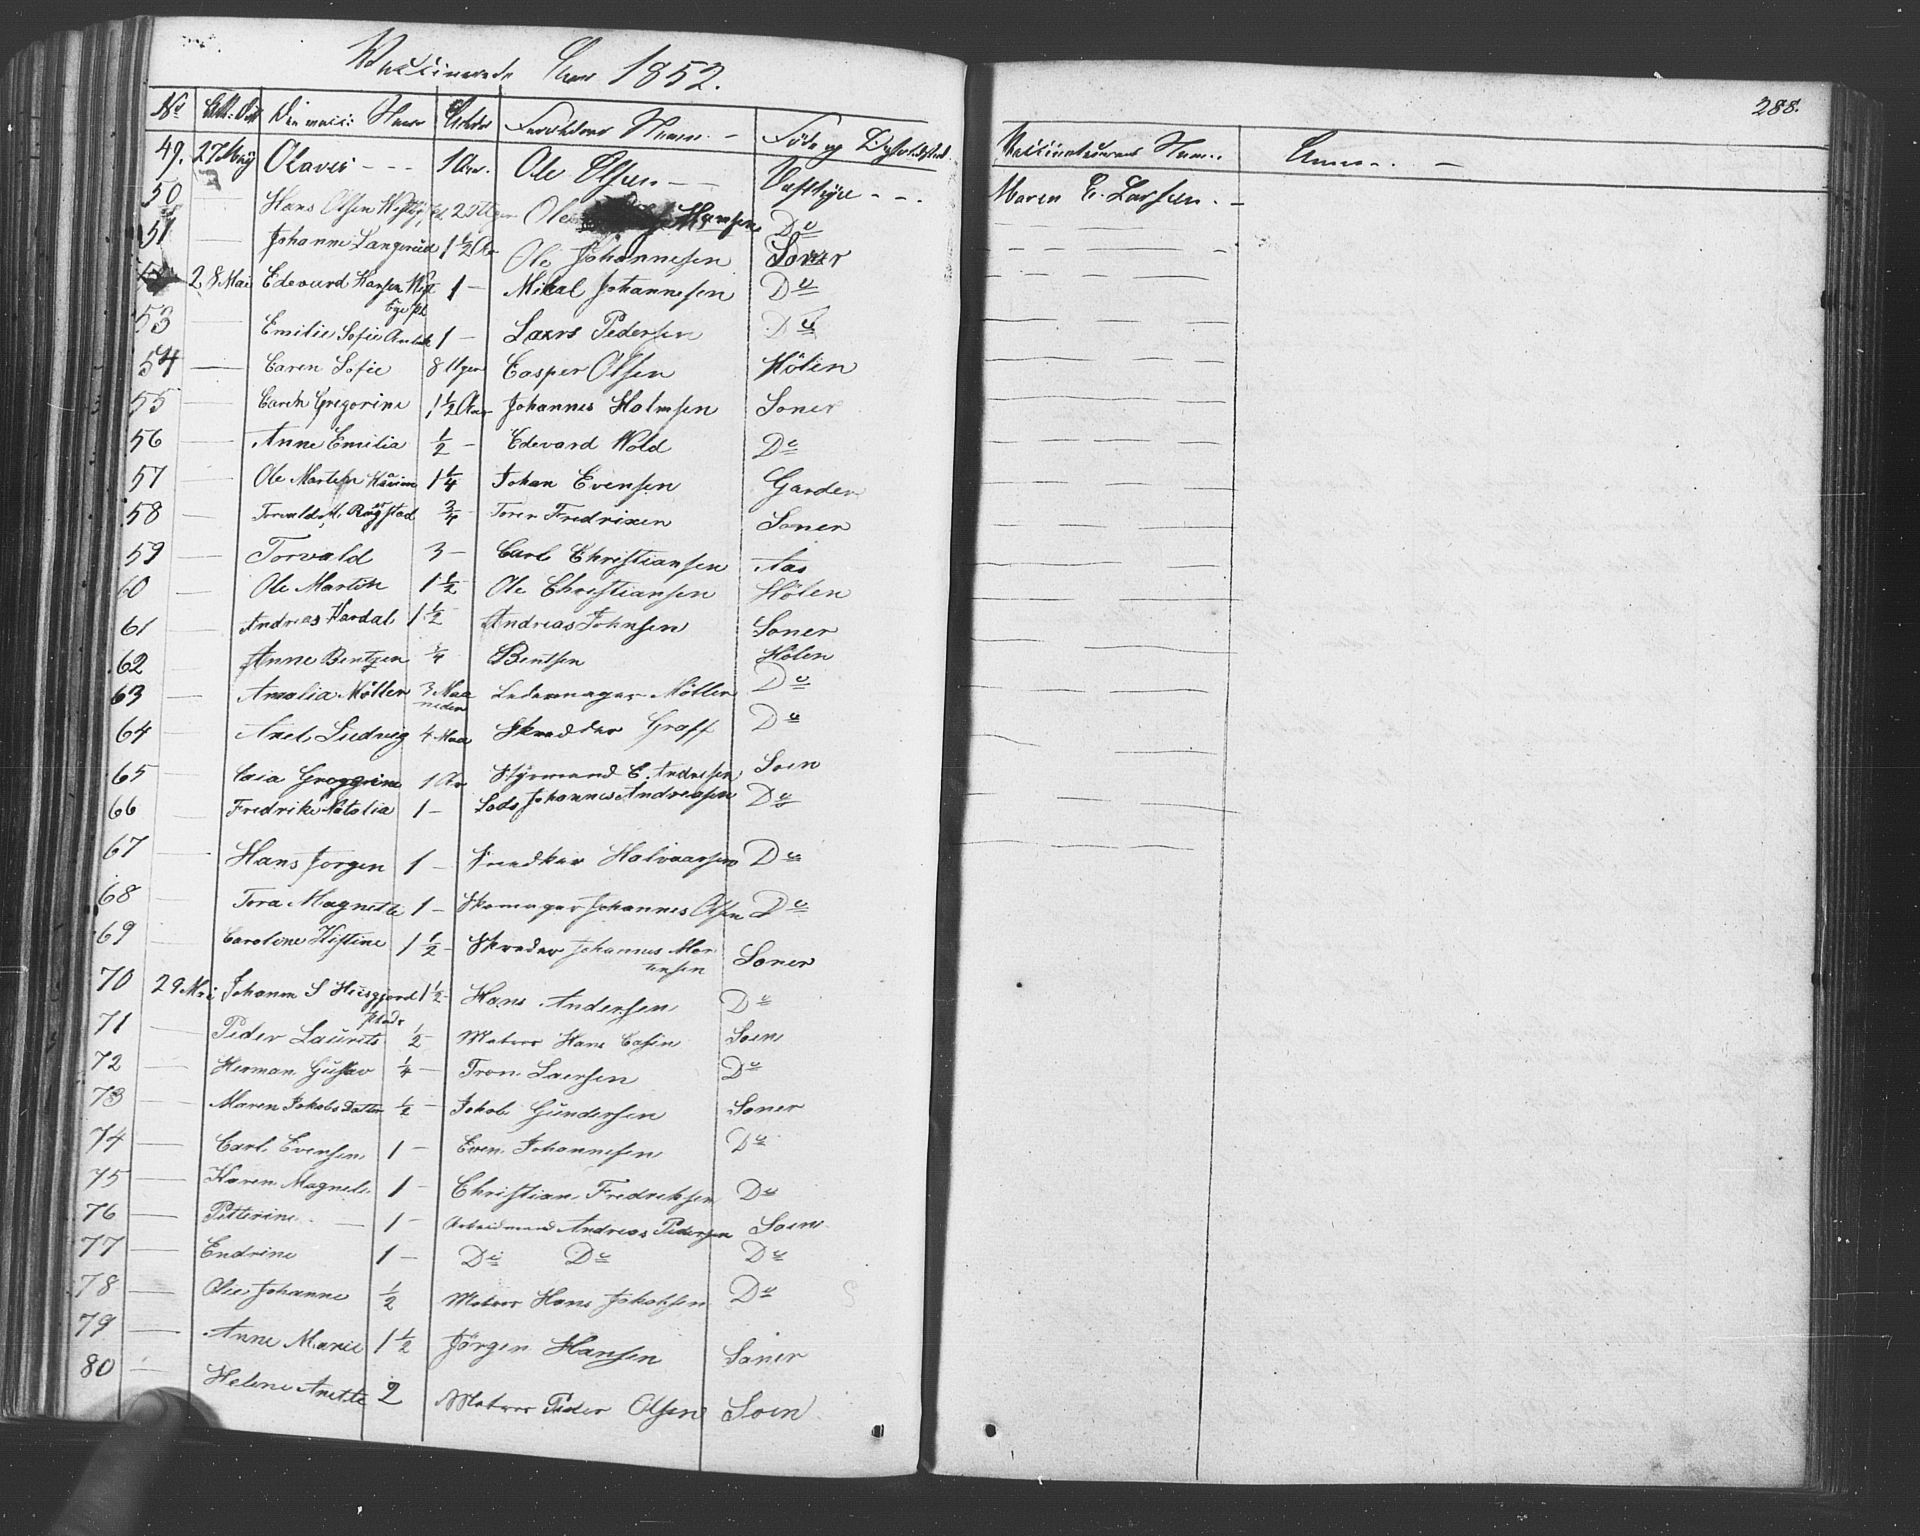 Vaccinerede Aar 1852.
288.
No Navn Alder Forældres Navn. Føde og
49. 27 May Olaves - - - 1 Aar. Ole Olsen - -
Maren E. Larsen. -
50 — Hans Olsen Ole Hansen Do
51 — Johanne Langerud 1 1/2 Aar Ole Johannesen Soner
28 Mai Edevard Hansen 1 — Mikal Johannesen Do
53 — Emilie Sofie 1 — Laars Pedersen Do
54 — Caren Sofie 8 Uger Casper Olsen Hölen
55 — Caren Gregorine 1 1/2 Aar Johannes Holmsen Soner
56 — Anne Emilia 1/2 — Edevard Wold Do
57 — Ole Martin 1 1/4 Johan Evensen Garder
58 — Torvald 3/4 Torer Fredrixen Soner
59 — Torvald 3 — Carl Christiansen Aas
60 — Ole Martin 1 1/2 — Ole Christiansen Hölen
61 — Andreas Hardal 1 1/2 Andreas Johnsen Soner
62 — Anne Bentzen 3/4 Bentsen Hölen
63 — Amalia Möller 3 Maa
neder Möller Do
64 — Axel Ludvig 4 Maa Skrædder Graff Do
65 — Caia 1 Aar Styrmand E. Andresen Soen
66 — Fredrike Natalia 1 — Lods Johannes Andreasen Do
67 — Hans Jorgen 1 — Halvaarsen Do
68 — Tora Magnette 1 — Skomager Johannes Olsen Do
69 — Caroline 1 1/2 — Skreder Johannes Mor
tensen Soner
70 29 Mai Johann S 1 1/2 Hans Andersen Do
71 — Peder Laurits 1/2 — Matros Hans Soen
72 — Herman Gustav 1/4 — Tron Laersen Do
73 — Maren Jakobs Datter 1/2 — Jakob Gundersen Soner
74 — Carl Evensen 1 — Even Johannesen Do
75 — Karen Magnete 1 — Christian Fredriksen Do
76 — Petterine — 1 — Arbeidmand Andreas Pedersen Soen
77 — Endrine 1 — Do Do Do
78 — Olie Johanne 1/2 Matros Hans Jakobsen Do
79 — Anne Marie 1 1/2 Jörgen Hansen Soner
80 — Helene Anette 2 Matros Peder Olsen Soen